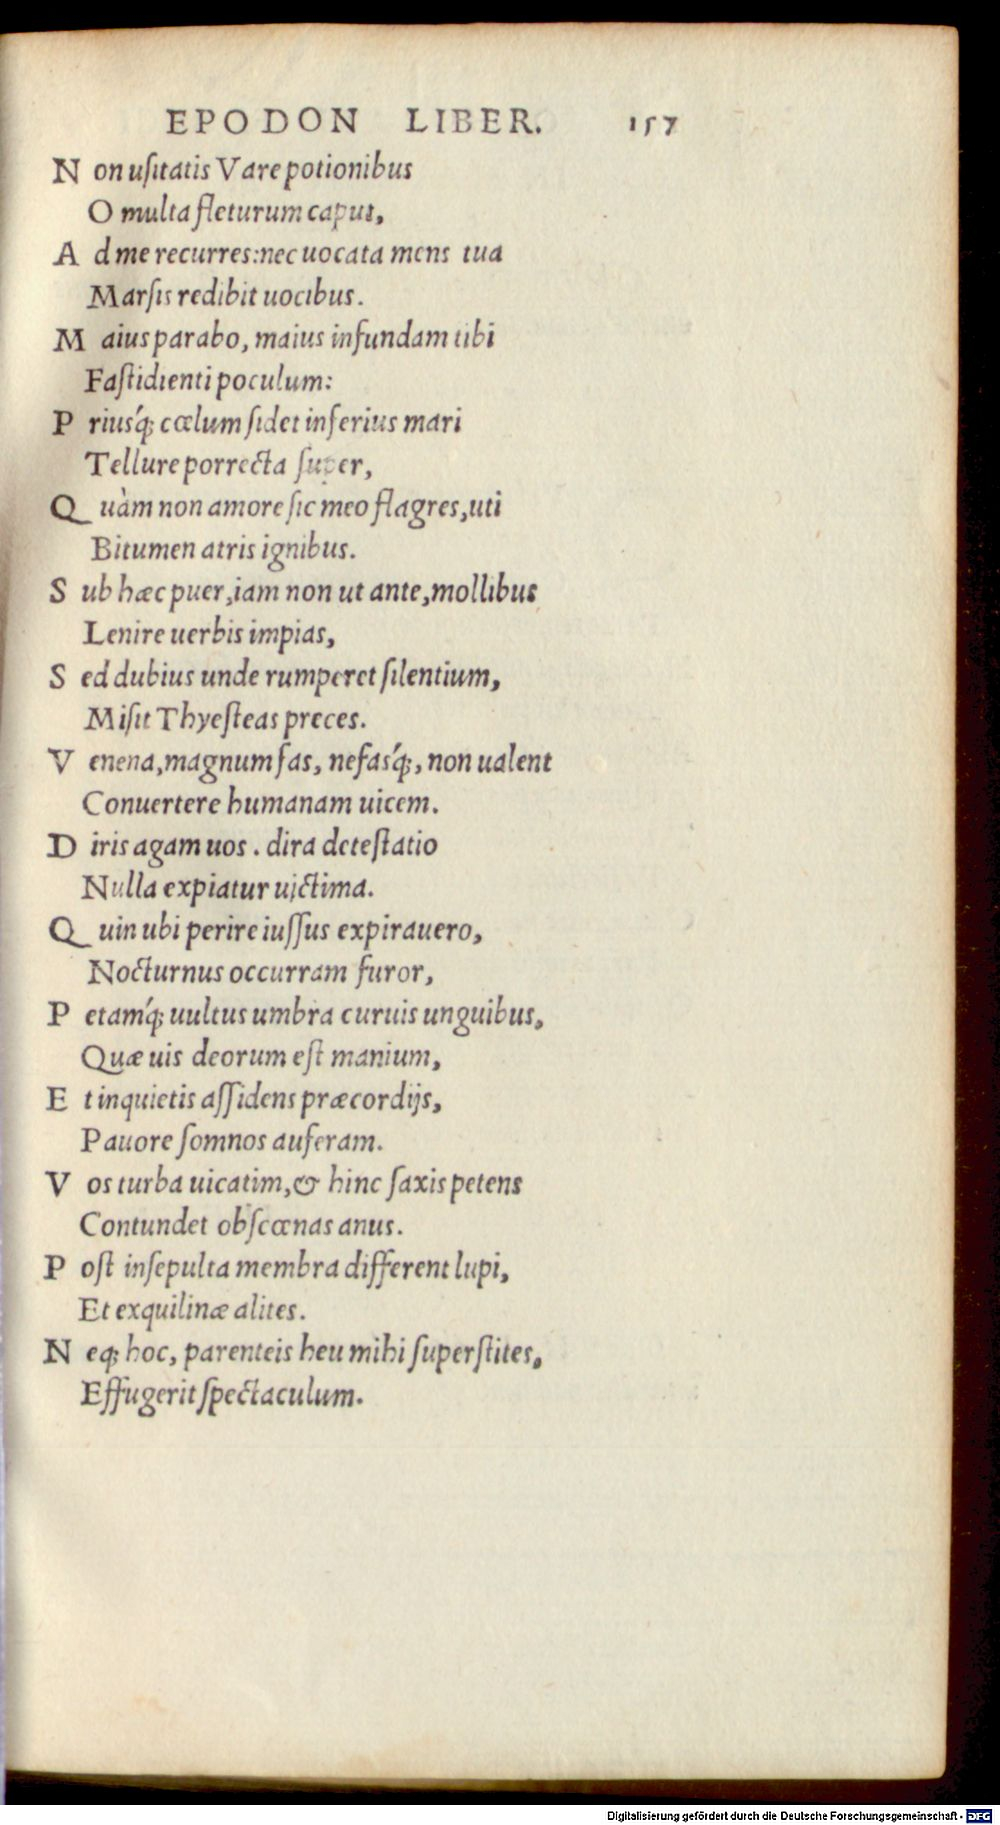 EPODON LIBER. 157
N on uſitatis Vare potionibus
O multa fleturum caput,
A d me recurres: nec uocata mens tua
Marſis redibit uocibus.
M aius parabo, maius infundam tibi
Faſtidienti poculum:
P riusq́; cœlum ſidet inferius mari
Tellure porrecta ſuper,
Q uàm non amore ſic meo flagres, uti
Bitumen atris ignibus.
S ub hæc puer, iam non ut ante, mollibus
Lenire uerbis impias,
S ed dubius unde rumperet ſilentium,
Miſit Thyeſteas preces.
V enena, magnum fas, nefasq́;, non ualent
Conuertere humanam uicem.
D iris agam uos. dira deteſtatio
Nulla expiatur uictima.
Q uin ubi perire iuſſus expirauero,
Nocturnus occurram furor,
P etamq́; uultus umbra curuis unguibus,
Quæ uis deorum eſt manium,
E t inquietis aſſidens præcordijs,
Pauore ſomnos auferam.
V os turba uicatim, & hinc ſaxis petens
Contundet obſcœnas anus.
P oſt inſepulta membra different lupi,
Et exquilinæ alites.
N eq; hoc, parenteis heu mihi ſuperſtites,
Effugerit ſpectaculum.
Digitalisierung gefördert durch die Deutsche Forschungsgemeinschaft - DFG